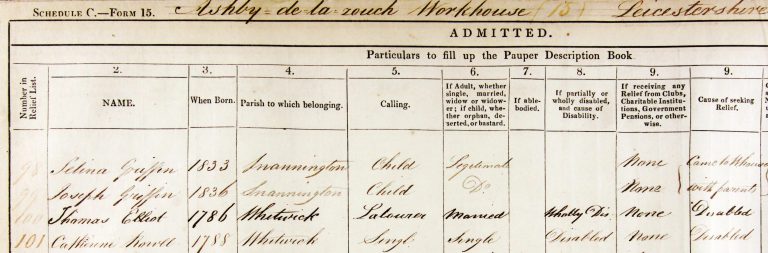 SCHEDULE C.—FORM 15. Ashby-de-la-zouch Workhouse (15) Leicestershire
ADMITTED.
Particulars to fill up the Pauper Description Book
Number in Relief List.
2. NAME.
3. When Born.
4. Parish to which belonging.
5. Calling.
6. If Adult, whether single, married, widow or widower; if child, whether orphan, deserted, or bastard.
7. If able-bodied.
8. If partially or wholly disabled, and cause of Disability.
9. If receiving any Relief from Clubs, Charitable Institutions, Government Pensions, or otherwise.
9. Cause of seeking Relief.
98 Selina Griffin 1833 Snannington Child Legitimate None Came to Whouse
99 Joseph Griffin 1836 Snannington Child Do. None with parents
100 Thomas Elliot 1786 Whitwick Labourer Married Wholly Dis. None Disabled
101 Catherine 1788 Whitwick Singl. Single Disabled None Disabled